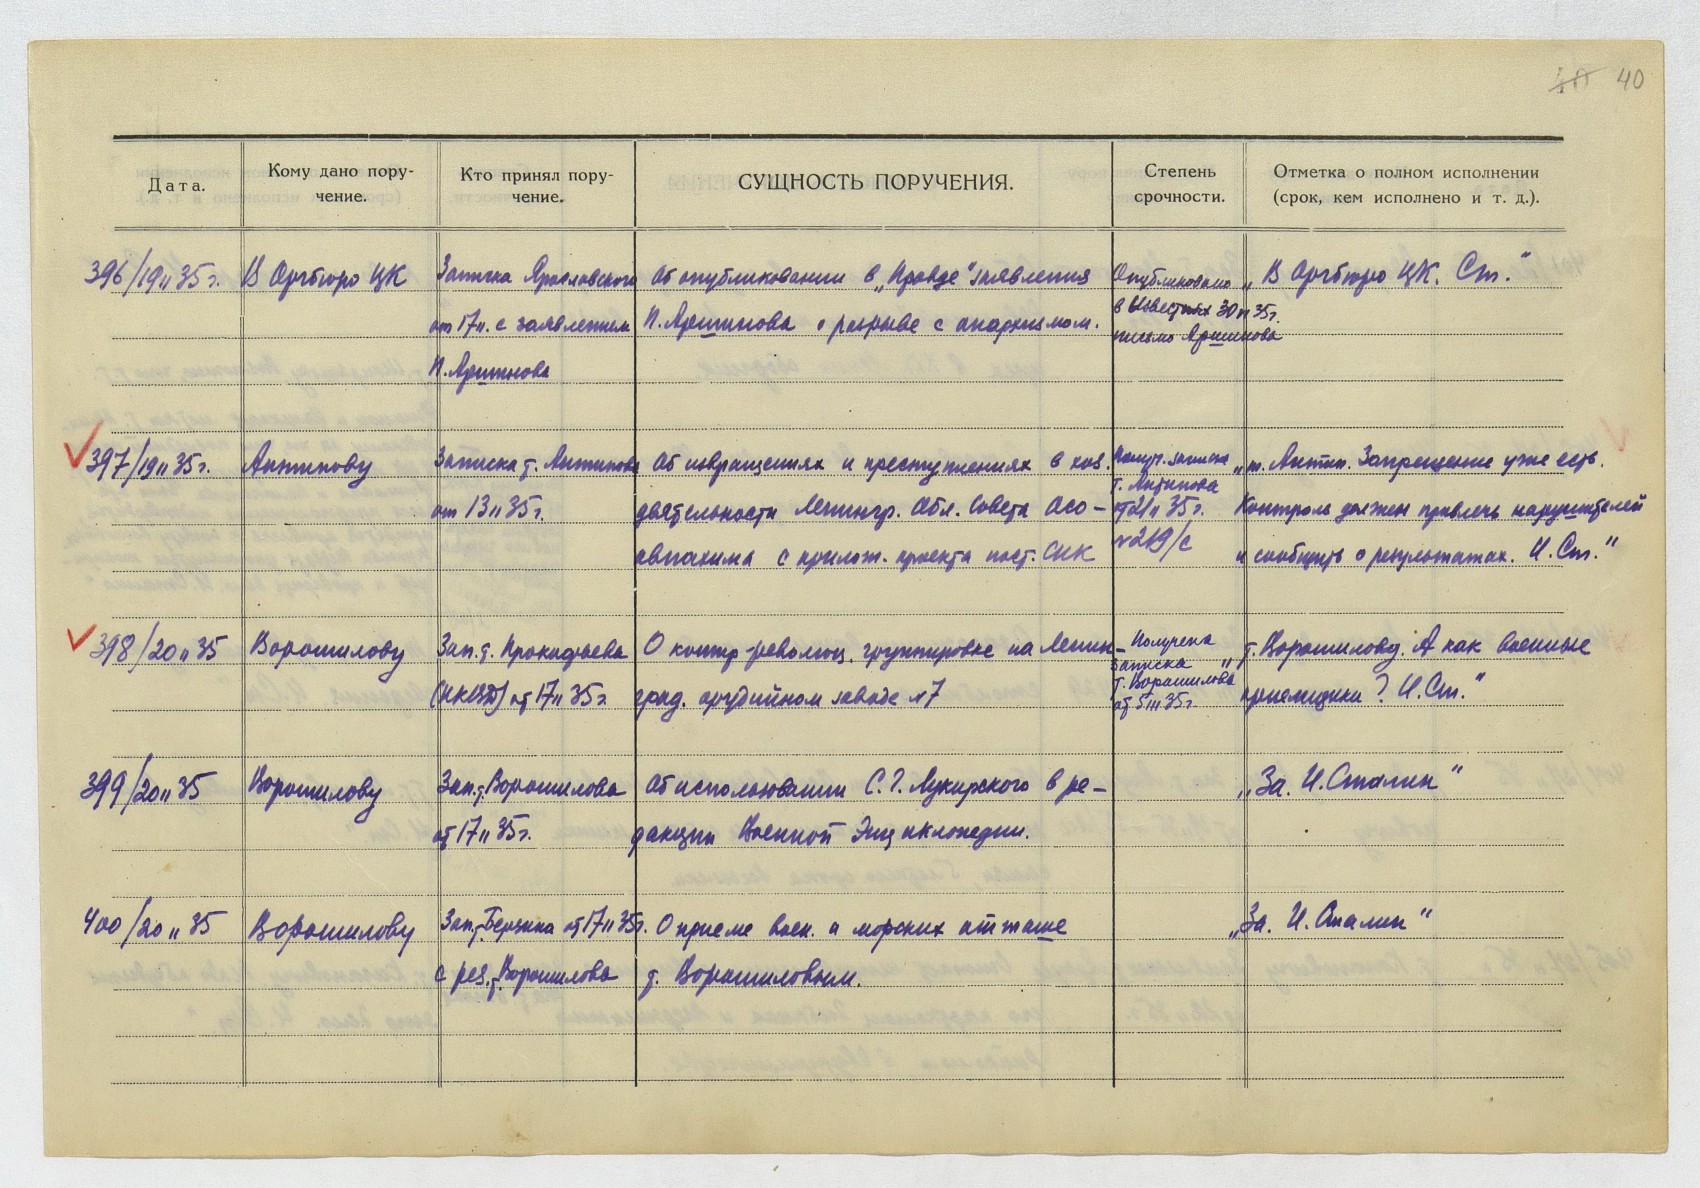 40 40
Дата.
Кому дано пору-
чение.
Кто принял пору-
чение.
СУЩНОСТЬ ПОРУЧЕНИЯ.
Степень
срочности.
Отметка о полном исполнении
(срок, кем исполнено и т. д.).
396/19 II 35 г.
В Оргбюро ЦК
Записка Ярославского
от 17 II. с заявлением
П. Аршинова
Об опубликовании в „Правде" заявления
П. Аршинова о разрыве с анархизмом.
Опубликовано
в Известиях 30 VI 35 г.
письмо Аршинова
„В Оргбюро ЦК. Ст."
397/19 II 35 г.
Антипову
Записка т. Антипова
от 13 II 35 г.
Об извращениях и преступлениях в хоз.
деятельности Ленингр. Обл. Совета Осо-
авиахима с прилож. проекта пост. СНК
Получ. записка
т. Антипова
от 21 II 35 г.
№ 219/с
„т. Антип. Запрещение уже есть.
Контроль должен привлечь нарушителей
и сообщить о результатах. И. Ст."
398/20 II 35
Ворошилову
Зап. т. Прокофьева
(НКВД) от 17 II 35 г.
О контр-революц. группировке на Ленин-
град. орудийном заводе № 7
Получена
записка
т. Ворошилова
от 5 III 35 г.
„т. Ворошилову. А как военные
приемщики? И. Ст."
399/20 II 35
Ворошилову
Зап. т. Ворошилова
от 17 II 35 г.
Об использовании С. Г. Лукирского в ре-
дакции Военной Энциклопедии.
„За. И. Сталин"
400/20 II 35
Ворошилову
Зап. т. Берзина от 17 II 35 г.
с рез. т. Ворошилова
О приеме воен. и морских атташе
т. Ворошиловым.
„За. И. Сталин"